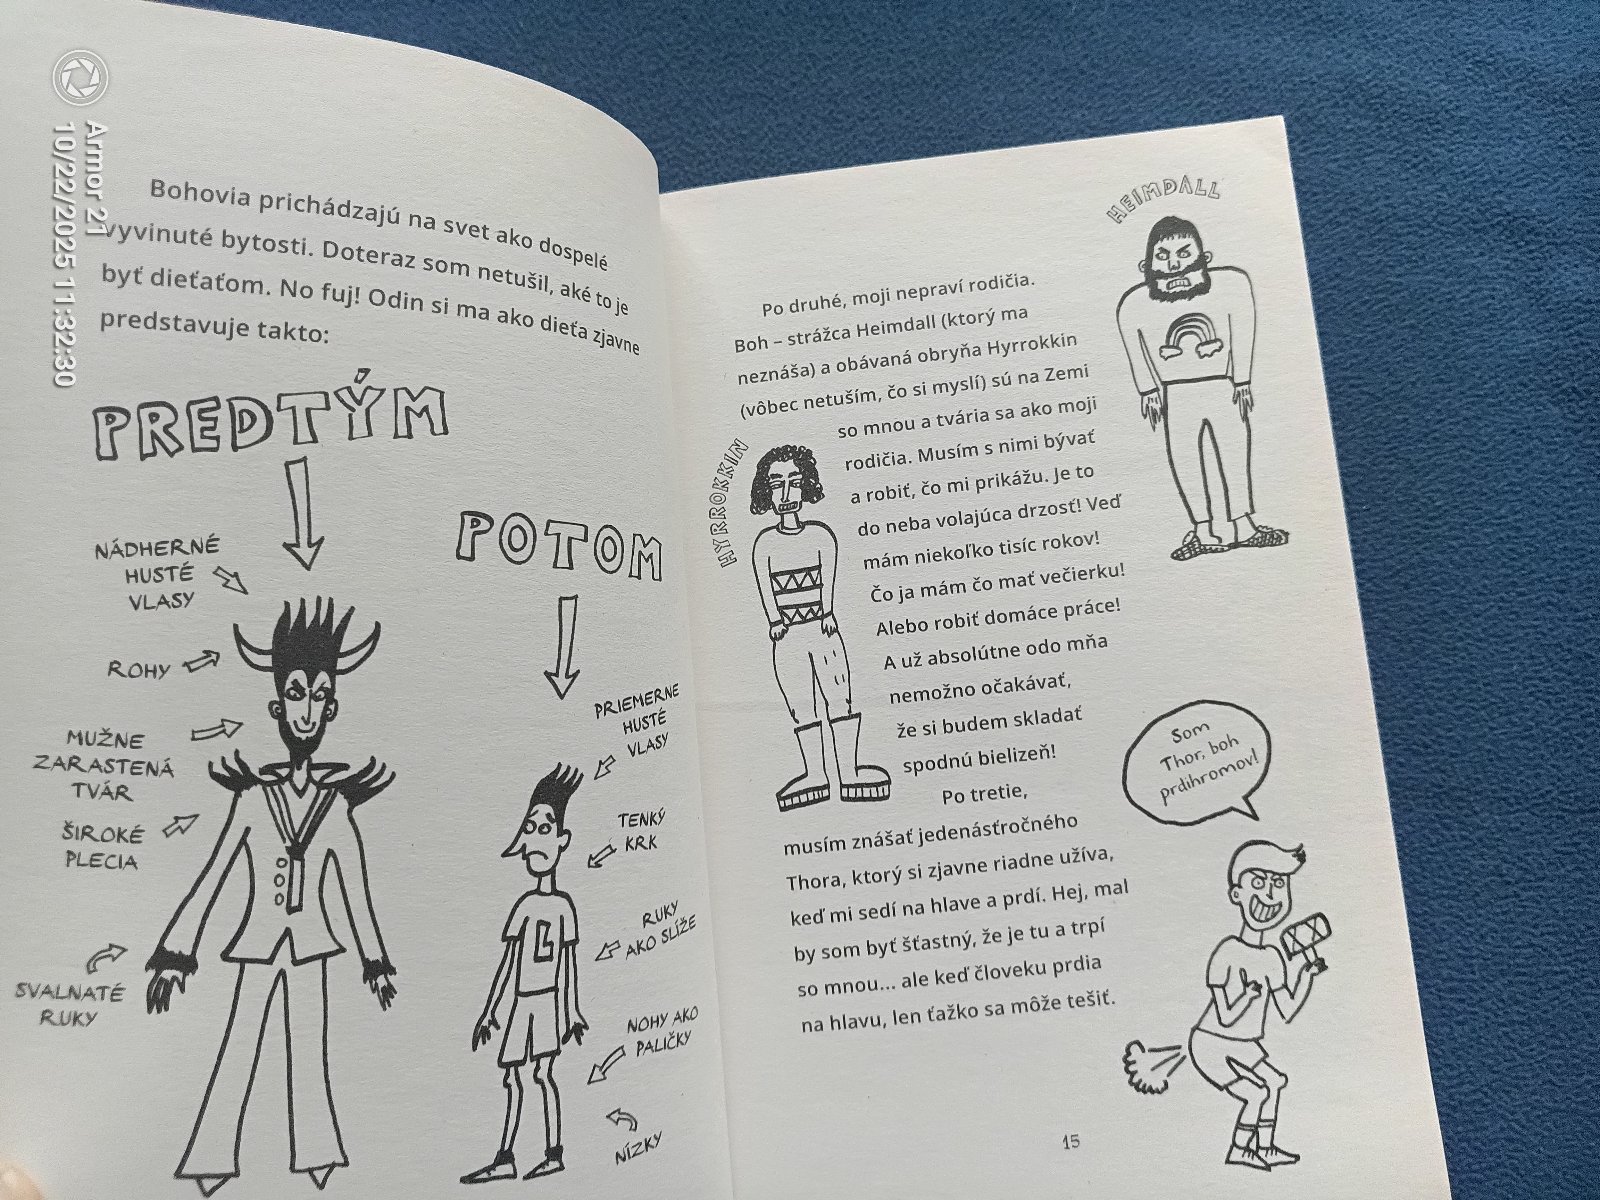 Armor 21
10/22/2025 11:32:30
Bohovia prichádzajú na svet ako dospelé
vyvinuté bytosti. Doteraz som netušil, aké to je
byť dieťaťom. No fuj! Odin si ma ako dieťa zjavne
predstavuje takto:
PREDTÝM
NÁDHERNÉ
HUSTÉ
VLASY
ROHY
MUŽNE
ZARASTENÁ
TVÁR
ŠIROKÉ
PLECIA
SVALNATÉ
RUKY
POTOM
PRIEMERNE
HUSTÉ
VLASY
TENKÝ
KRK
RUKY
AKO SLÍŽE
L
NOHY AKO
PALIČKY
NÍZKY
HEIMDALL
Po druhé, moji nepraví rodičia.
Boh – strážca Heimdall (ktorý ma
neznáša) a obávaná obryňa Hyrrokkin
(vôbec netuším, čo si myslí) sú na Zemi
so mnou a tvária sa ako moji
rodičia. Musím s nimi bývať
a robiť, čo mi prikážu. Je to
do neba volajúca drzosť! Veď
mám niekoľko tisíc rokov!
Čo ja mám čo mať večierku!
Alebo robiť domáce práce!
A už absolútne odo mňa
nemožno očakávať,
že si budem skladať
spodnú bielizeň!
HYRROKKIN
Po tretie,
musím znášať jedenásťročného
Thora, ktorý si zjavne riadne užíva,
keď mi sedí na hlave a prdí. Hej, mal
by som byť šťastný, že je tu a trpí
so mnou... ale keď človeku prdia
na hlavu, len ťažko sa môže tešiť.
Som
Thor, boh
prdihromov!
15